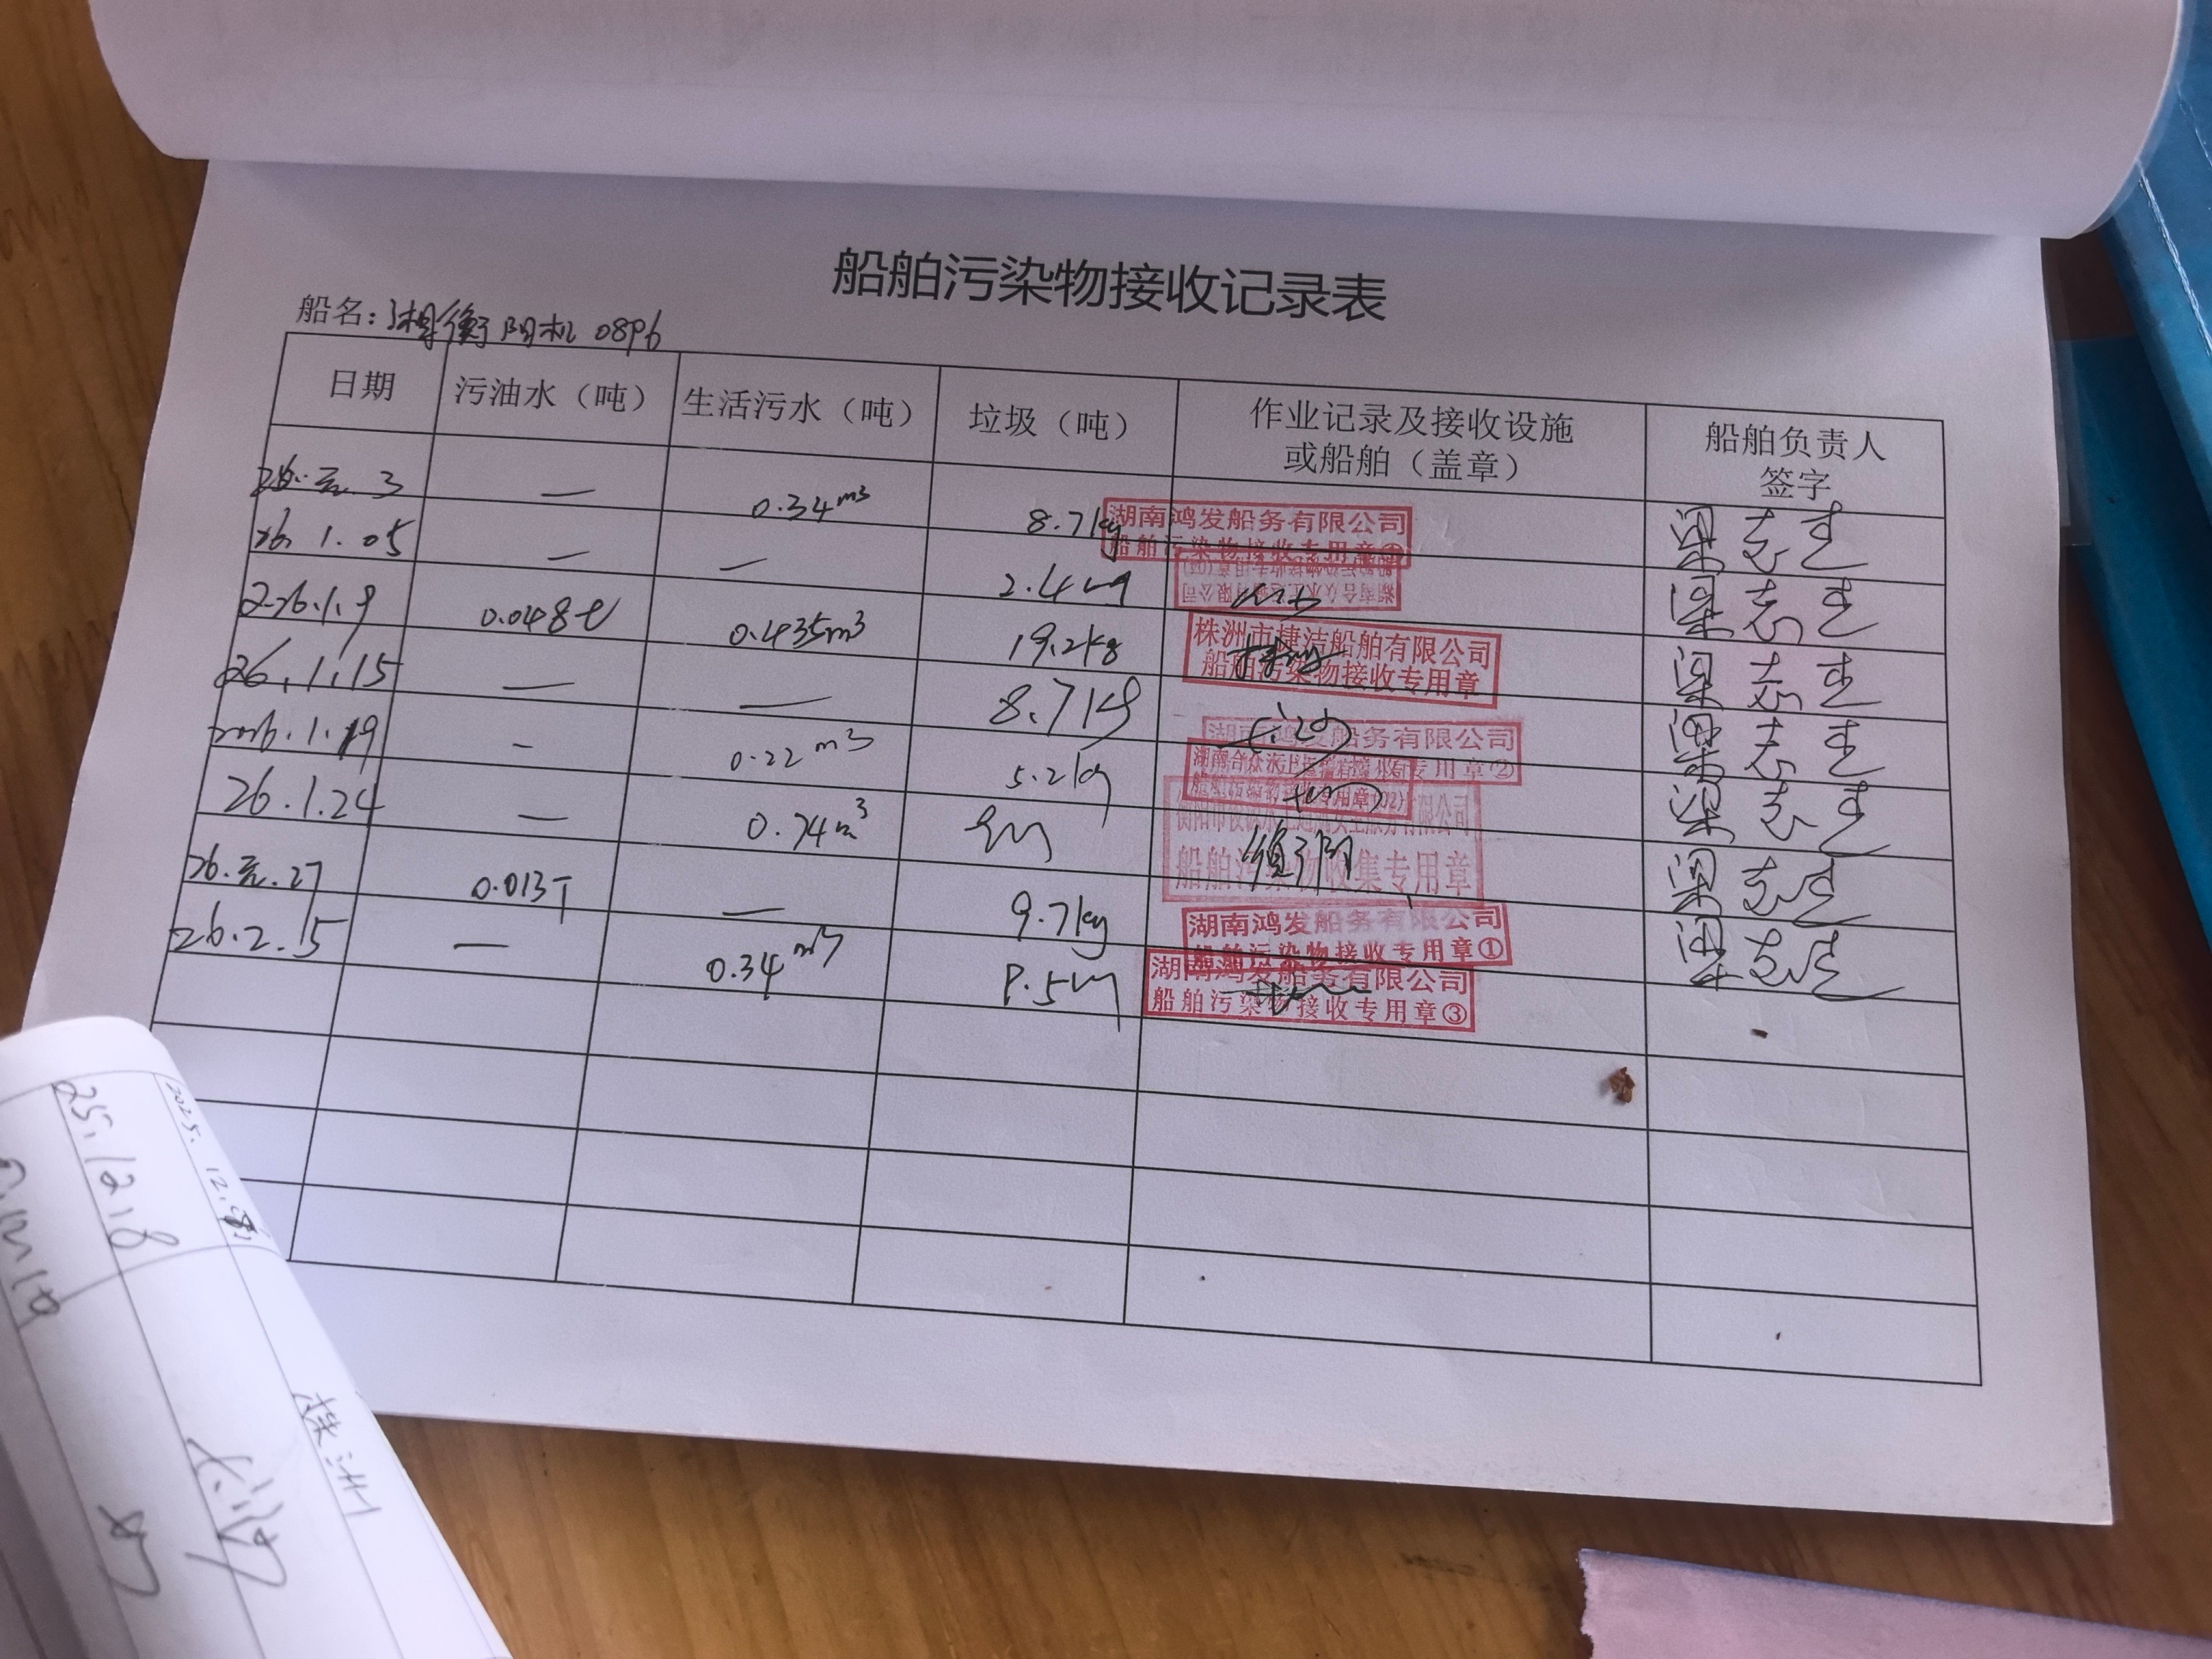 船舶污染物接收记录表
船名：湘衡阳机 0896
日期 污油水（吨） 生活污水（吨） 垃圾（吨） 作业记录及接收设施或船舶（盖章） 船舶负责人签字
26.元.3 — 0.34m³ 8.7kg 湖南鸿发船务有限公司 船舶污染物接收专用章 梁志
26.1.05 — — 2.4kg 梁志
226.1.9 0.048t 0.435m³ 19.2kg 株洲市捷洁船舶有限公司 船舶污染物接收专用章 梁志
26.1.15 — — 8.7kg 梁志
2026.1.19 - 0.22m³ 5.2kg 湖南鸿发船务有限公司 专用章② 梁志
26.1.24 — 0.74m³ 船舶污染物收集专用章 梁志
26.元.27 0.013T — 9.7kg 湖南鸿发船务有限公司 船舶污染物接收专用章① 梁志
26.2.15 — 0.34m³ 湖南鸿发船务有限公司 船舶污染物接收专用章③
2025.12.
25.12.8
株洲